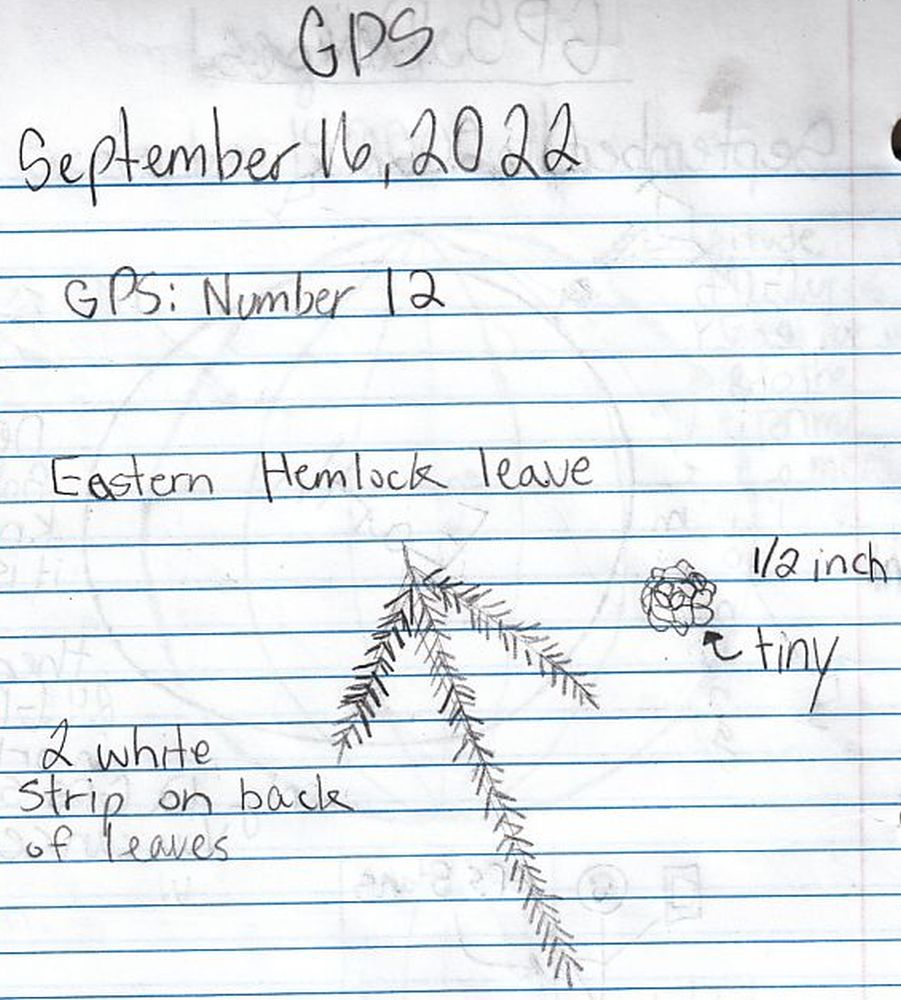 GPS
September 16, 2022
GPS: Number 12
Eastern Hemlock leave
1/2 inch
tiny
2 white
strip on back
of leaves